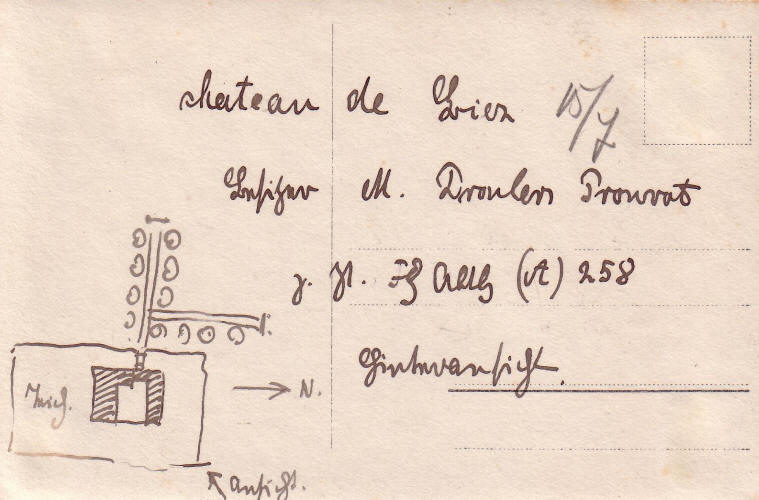 chateau de Liez 15/7
Besitzer M. Droulers Prouvot
z. Zt. (A) 258
Hinteransicht.
Teich.
N.
Ansicht.